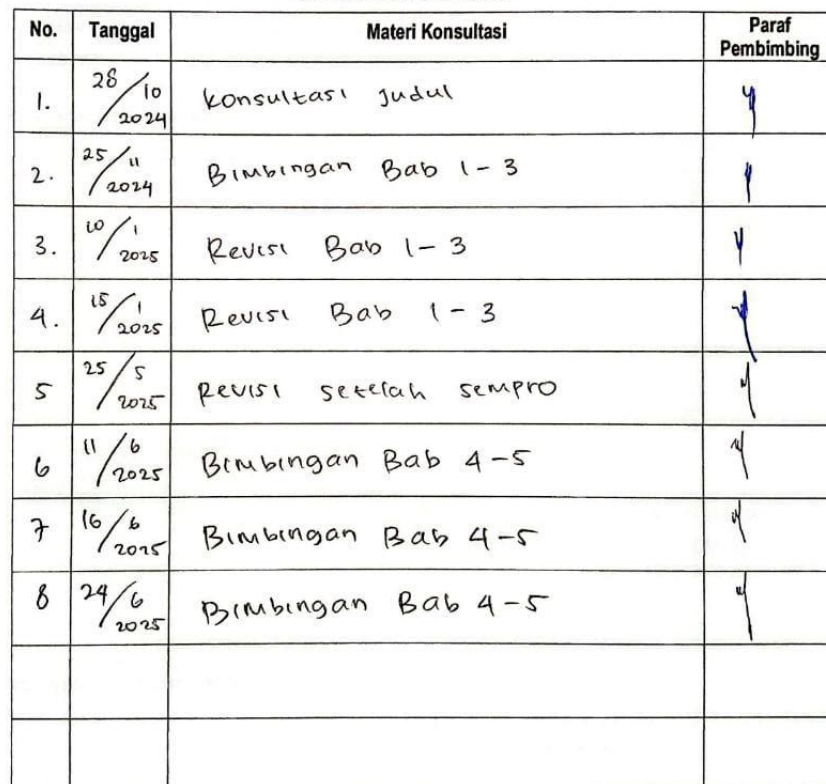 No. Tanggal Materi Konsultasi Paraf Pembimbing
1. 28/10 2024 Konsultasi Judul
2. 25/11 2024 Bimbingan Bab 1-3
3. 10/1 2025 Revisi Bab 1-3
4. 15/1 2025 Revisi Bab 1-3
5 25/5 2025 Revisi setelah sempro
6 11/6 2025 Bimbingan Bab 4-5
7 16/6 2025 Bimbingan Bab 4-5
8 24/6 2025 Bimbingan Bab 4-5